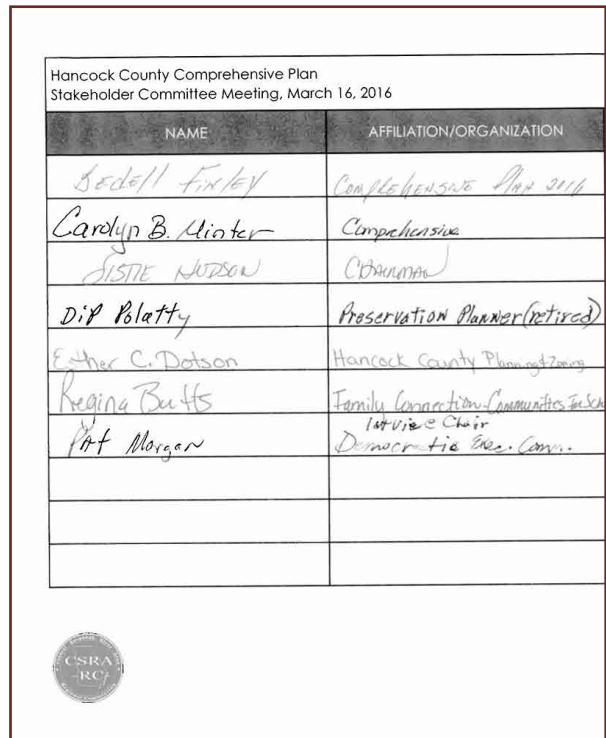 Hancock County Comprehensive Plan
Stakeholder Committee Meeting, March 16, 2016
NAME AFFILIATION/ORGANIZATION
Bedell Finley COMPREHENSIVE PLAN 2016
Carolyn B. Minter Comprehensive
SISTIE HUDSON CHAIRMAN
Dip Polatty Preservation Planner (retired)
Esther C. Dotson Hancock County Planning & Zoning
Regina Butts Family Connection-Communities In Sch
1st Vice Chair
Pat Morgan Democratic Exec. Comm.
CSRA
RC